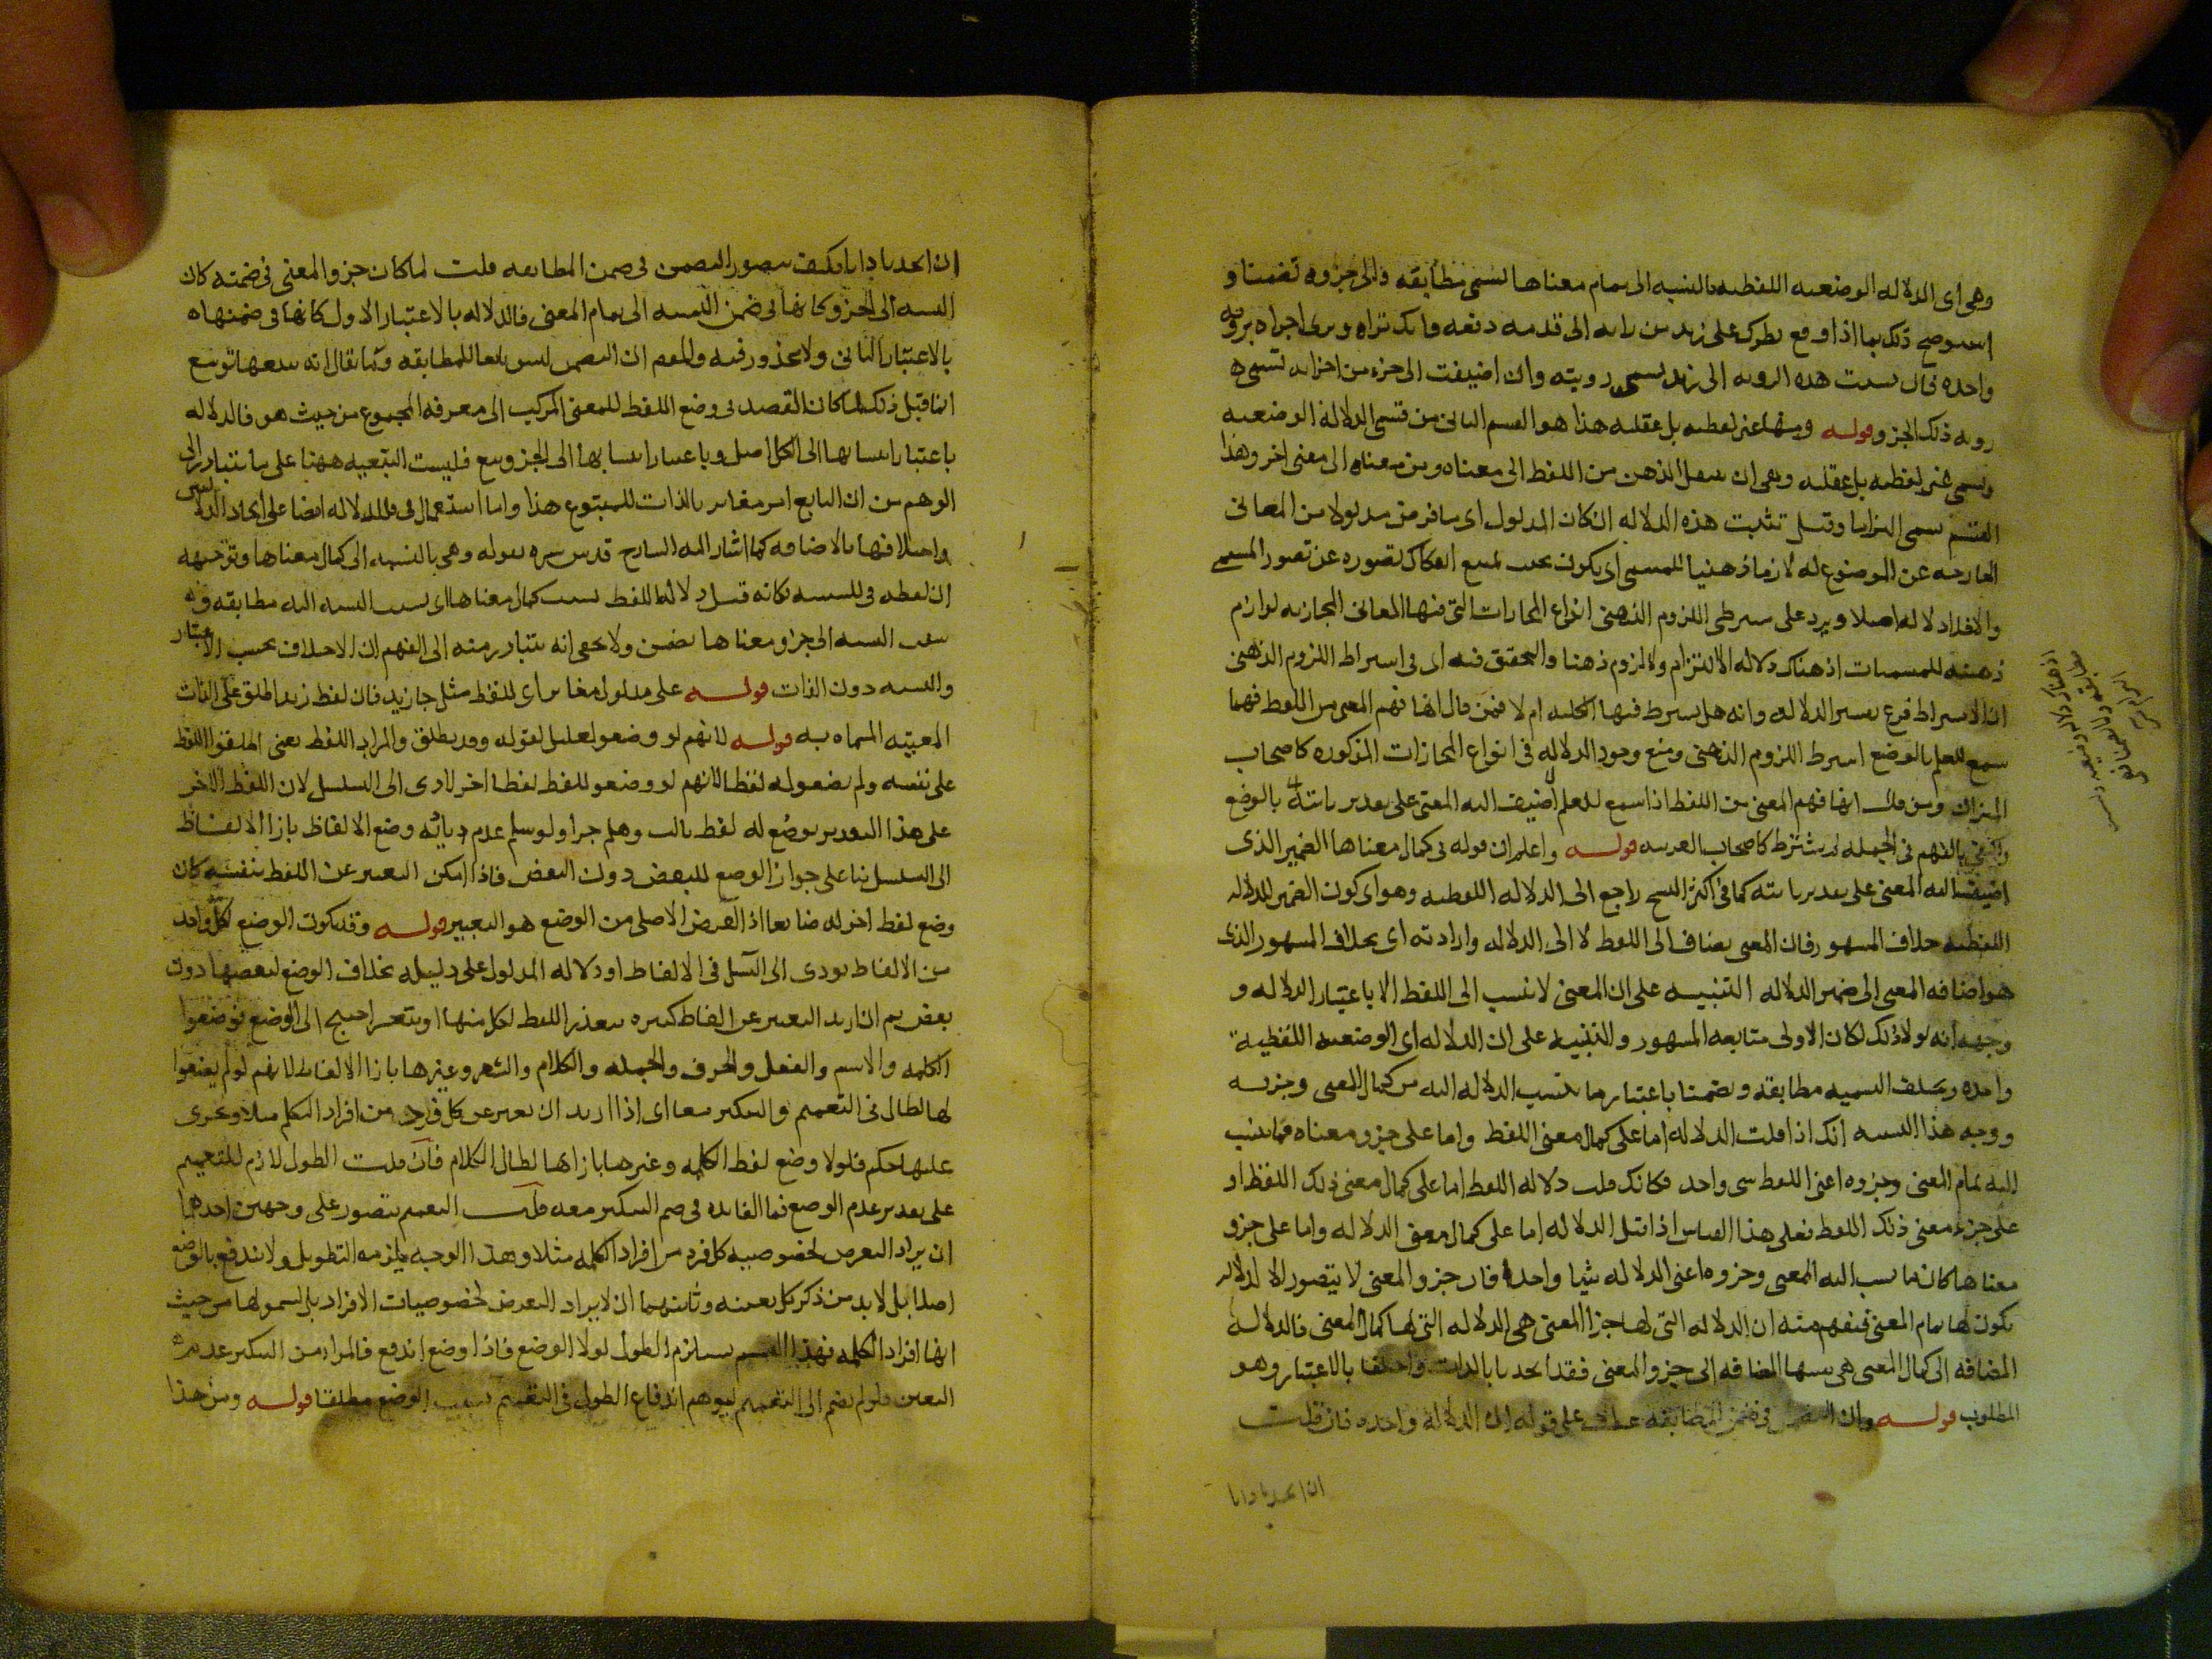 وهى اى الدلاله الوضعيه اللفظيه بالنسبه الى تمام معناها تسمى مطابقه والى جزوه تضمنا و
استوضح ذلك بما اذا وقع نظرك على زيد من راسه الى قدمه دفعه فانك تراه وترى اجزاه برويه
واحده فان نسبت هذه الرويه الى زيد تسمى رويته وان اضيفت الى جزء من اجزايه تسمى
رويه ذلك الجزو قوله ومنها غير لفظيه بل عقليه هذا هو القسم الثانى من قسمى الدلالة الوضعيه
وتسمى غير لفظيه بل عقليه وهى ان ينتقل الذهن من اللفظ الى معناه ومن معناه الى معنى اخر وهذا
القسم يسمى التزاما وقيل تثبت هذه الدلاله ان كان المدلول اى ما فرض مدلولا من المعانى
الخارجه عن الموضوع له لازما ذهنيا للمسمى اى يكون بحيث يمتنع انفكاك تصوره عن تصور المسمى
والا فلا دلاله اصلا ويرد على شرطى اللزوم الذهنى انواع المجازات التى فيها المعانى المجازيه لوازم
ذهنيه للمسميات اذ هناك دلاله الالتزام ولا لزوم ذهنا والتحقق فيه اى فى اشتراط اللزوم الذهنى
ان الاشتراط فرع تفسير الدلاله وانه هل يشترط فيها الكليه ام لا فمن قال انها فهم المعنى من اللفظ مهما
سمع للعلم بالوضع اشترط اللزوم الذهنى ومنع وجود الدلاله فى انواع المجازات المذكوره كاصحاب
الميزان ومن قال انها فهم المعنى من اللفظ اذا سمع للعلم اضيف اليه المعنى على تقدير بالوضع
واكتفى بالفهم فى الجمله لم يشترط كاصحاب العربيه قوله واعلم ان قوله فى كمال معناها الضمير الذى
اضيف اليه المعنى على تقدير كما فى اكثر النسخ راجع الى الدلاله اللفظيه وهو اى كون الضمير للدلاله
اللفظيه خلاف المشهور فان المعنى يضاف الى اللفظ لا الى الدلاله وارادته اى بخلاف المشهور الذى
هو اضافه المعنى الى ضمير الدلاله التنبيه على ان المعنى لا ينسب الى اللفظ الا باعتبار الدلاله و
وجهه انه لولا ذلك لكان الاولى متابعه المشهور والتنبيه على ان الدلاله اى الوضعيه اللفظية
واحده ويختلف التسميه مطابقه وتضمنا باعتبار ما ينسب الدلاله اليه من كمال المعنى وجزيه
ووجه هذا التنبيه انك اذا قلت الدلاله اما على كمال معنى اللفظ واما على جزو معناه فما ينسب
اليه تمام المعنى وجزوه اعنى اللفظ شى واحد فكانك قلت دلاله اللفظ اما على كمال معنى ذلك اللفظ او
على جزء معنى ذلك اللفظ فعلى هذا القياس اذا قيل الدلاله اما على كمال معنى الدلاله واما على جزو
معناها كان ما نسب اليه المعنى وجزوه اعنى الدلاله شيا واحدا فان جزو المعنى لا يتصور الا لدلاله
يكون لها تمام المعنى فيفهم منه ان الدلاله التى لها جزا المعنى هى الدلاله التى لها كمال المعنى فالدلاله
المضافه الى كمال المعنى هى نفسها المضافه الى جزو المعنى فقد اتحدتا بالذات واختلفا بالاعتبار وهو
المطلوب قوله وان التضمن فى ضمن المطابقه عطف على قوله ان الدلالة واحده فان قلت
ان اتحدتا ذاتا
ان اتحدتا ذاتا فكيف يتصور التضمن فى ضمن المطابقه قلت لما كان جزو المعنى فى ضمنه كان
النسبه الى الجزو كانها فى ضمن النسبه الى تمام المعنى فالدلاله بالاعتبار الاول كانها فى ضمنها
بالاعتبار الثانى ولا محذور فيه والمعم ان التضمن ليس تابعا للمطابقه وما يقال انه يتبعها توسع
انما قيل ذلك لما كان القصد فى وضع اللفظ للمعنى المركب الى معرفه المجموع من حيث هو فالدلاله
باعتبار انتسابها الى الكل اصل وباعتبار انتسابها الى الجزو تبع فليست التبعيه ههنا على ما يتبادر الى
الوهم من ان التابع امر مغاير بالذات للمتبوع هذا واما استعمال فى فللدلاله ايضا على اتحاد الدلالتين
واختلافهما بالاضافه كما اشار اليه الشارح قدس سره بقوله وهى بالنسبه الى كمال معناها وتوجيهه
ان لفظه فى للسببيه فكانه قيل دلاله اللفظ بسبب كمال معناها اى بسبب النسبه اليه مطابقه و
بسبب النسبه الى جزو معناها تضمن ولا يخفى انه يتبادر منه الى الفهم ان الاختلاف بحسب الاعتبار
والنسبه دون الذات قوله على مدلول مغاير اى للفظ مثل جا زيد فان لفظ زيد اطلق على الذات
المعينه المسماه به قوله لانهم لو وضعوا تعليل لقوله وقد يطلق والمراد اللفظ يعنى اطلقوا اللفظ
على نفسه ولم يضعوا له لفظا لانهم لو وضعوا للفظ لفظا اخر لادى الى التسلسل لان اللفظ الاخر
على هذا التقدير يوضع له لفظ ثالث وهلم جرا ولو سلم عدم وضع الالفاظ بازا الالفاظ
الى التسلسل بنا على جواز الوضع للبعض دون البعض فاذا امكن التعبير عن اللفظ بنفسه كان
وضع لفظ اخر له ضايعا اذ الغرض الاصلى من الوضع هو التعبير قوله وقد يكون الوضع لكل واحد
من الالفاظ يودى الى التسلسل فى الالفاظ او دلاله المدلول على دليله بخلاف الوضع لبعضها دون
بعض ثم ان اريد التعبير عن الفاظ كثيره يتعذر اللفظ لكل منها او يتعسر احتيج الى الوضع فوضعوا
الكلمه والاسم والفعل والحرف والجمله والكلام والشعر وغيرها بازا الالفاظ لانهم لو لم يضعوا
لها لطال فى التعميم والتنكير معا اى اذا اريد ان يعبر عن كل فرد من افراد الكلم مثلا ويجرى
عليها حكم فلولا وضع لفظ الكلمه وغيرها بازاها لطال الكلام فان قلت الطول لازم للتعميم
على تقدير عدم الوضع فما الفايده فى ضم التنكير معه قلت التعميم يتصور على وجهين احدهما
ان يراد التعرض لخصوصيه كل فرد من افراد الكلمه مثلا وهذا الوجه يلزمه التطويل ولا يندفع بالوضع
اصلا بل لا بد من ذكر كل بعينه وثانيهما ان لا يراد التعرض لخصوصيات الافراد بل لشمولها من حيث
انها افراد الكلمه فهذا القسم يستلزم الطول لولا الوضع فاذا وضع اندفع فالمراد من التنكير عدم
التعيين فلو لم يضم الى التعميم ليوهم اندفاع الطول فى التعميم بسبب الوضع مطلقا قوله ومن هذا